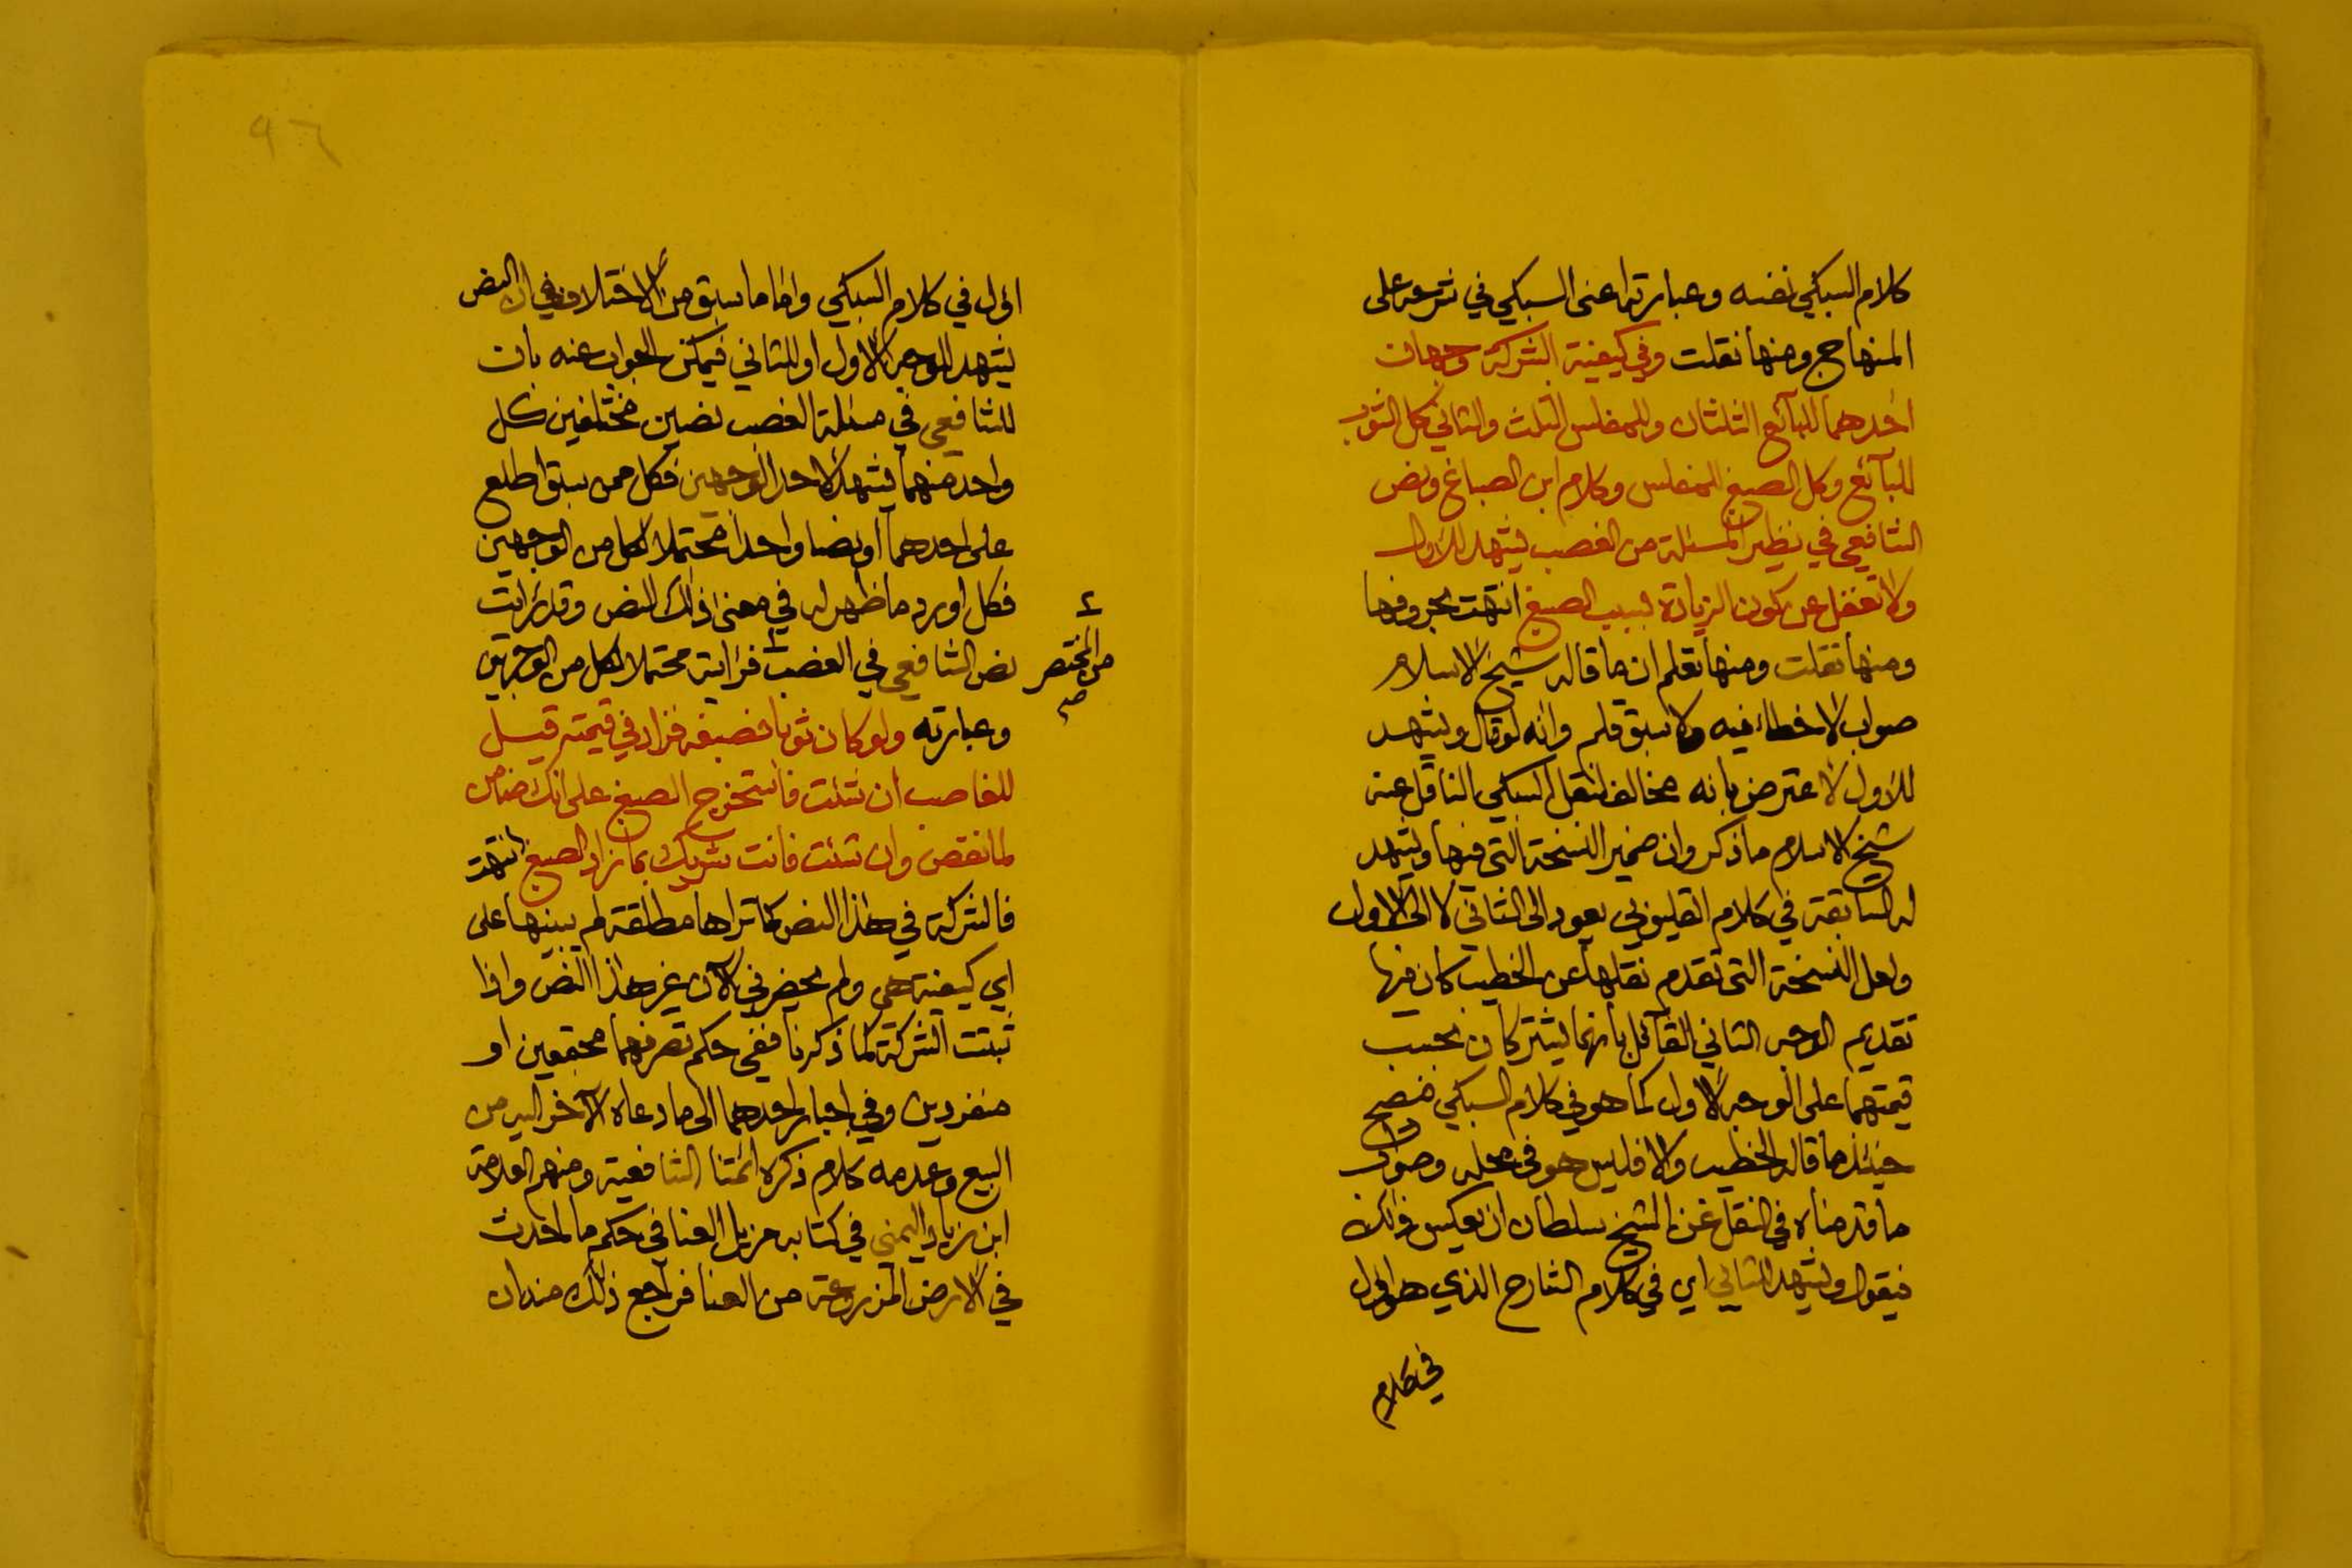 كلام السبكي نفسه وعبارته اعني السبكي في شرحه على
المنهاج ومنها نقلت وفي كيفية الشركة وجهان
احدهما للبآئع الثلثان وللمفلس الثلث والثاني كل الثوب
للبآئع وكل الصبغ للمفلس وكلام ابن الصباغ ونص
الشافعي في نظير المسئلة من الغصب يشهد للاول
ولا تغفل عن كون الزيادة بسبب الصبغ انتهت بحروفها
ومنها نقلت ومنها تعلم ان ما قاله شيخ الاسلام
صواب لا خطاء فيه ولا سبق قلم وانه لو قال ويشهد
للاول لاعترض بانه مخالف لنقل السبكي الناقل عنه
شيخ الاسلام ما ذكر وان ضمير النسخة التي فيها ويشهد
له السابقة في كلام القليوبي يعود الى الثاني لا الى الاول
ولعل النسخة التي تقدم نقلها عن الخطيب كان فيها
تقديم الوجه الثاني القآئل بانهما يشتركان بحسب
قيمتهما على الوجه الاول كما هو في كلام السبكي فيصح
حينئذ ما قاله الخطيب والا فليس هو في محله وصواب
ما قدمناه في النقل عن الشيخ سلطان ان يعكس ذلك
فيقول ويشهد للثاني اي في كلام الشارح الذي هو الاول
في كلام
٩٦
الاول في كلام السبكي واما ما سبق من الاختلاف في ان النص
يشهد للوجه الاول او للثاني فيمكن الجواب عنه بان
للشافعي في مسئلة الغصب نصين مختلفين كل
واحد منهما يشهد لاحد الوجهين فكل ممن سبق اطلع
على احدهما او نصا واحدا محتملا لكل من الوجهين
فكل اورد ما ظهر له في معنى ذلك النص وقد رايت
نص الشافعي في الغصب فرايته محتملا لكل من الوجهين
من المختصر صح
وعبارته ولو كان ثوبا فصبغه فزاد في قيمته قيل
للغاصب ان شئت فاستخرج الصبغ على انك ضامن
لما نقص وان شئت فانت شريك بما زاد الصبغ انتهت
فالشركة في هذا النص كما تراها مطلقة لم يبينها على
اي كيفية هي ولم يحضرني الآن غير هذا النص واذا
ثبتت الشركة كما ذكرنا ففي حكم تصرفهما مجتمعين او
منفردين وفي اجبار احدهما الى ما دعاه الآخر اليه من
البيع وعدمه كلام ذكره ائمتنا الشافعية ومنهم العلامة
ابن زياد اليمني في كتابه مزيل العنا في حكم ما احدث
في الارض المزروعة من العنا فراجع ذلك منه ان